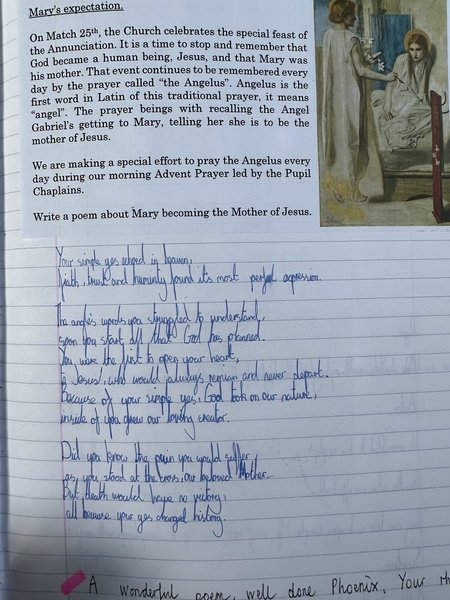 Mary's expectation.
On Match 25th, the Church celebrates the special feast of
the Annunciation. It is a time to stop and remember that
God became a human being, Jesus, and that Mary was
his mother. That event continues to be remembered every
day by the prayer called "the Angelus". Angelus is the
first word in Latin of this traditional prayer, it means
"angel". The prayer beings with recalling the Angel
Gabriel's getting to Mary, telling her she is to be the
mother of Jesus.
We are making a special effort to pray the Angelus every
day during our morning Advent Prayer led by the Pupil
Chaplains.
Write a poem about Mary becoming the Mother of Jesus.
Your simple yes echoed in heaven,
faith, trust and humility found it's most perfect expression.
The angle's words you struggled to understand,
soon you start all that God has planned.
You were the first to open your heart,
to Jesus, who would always remain and never depart.
Because of your simple yes, God took on our nature,
inside of you grew our loving creator.
Did you know the pain you would suffer
as you stood at the cross, our beloved Mother.
But, death would have no victory,
all because your yes changed history.
A wonderful poem, well done Phoenix. Your